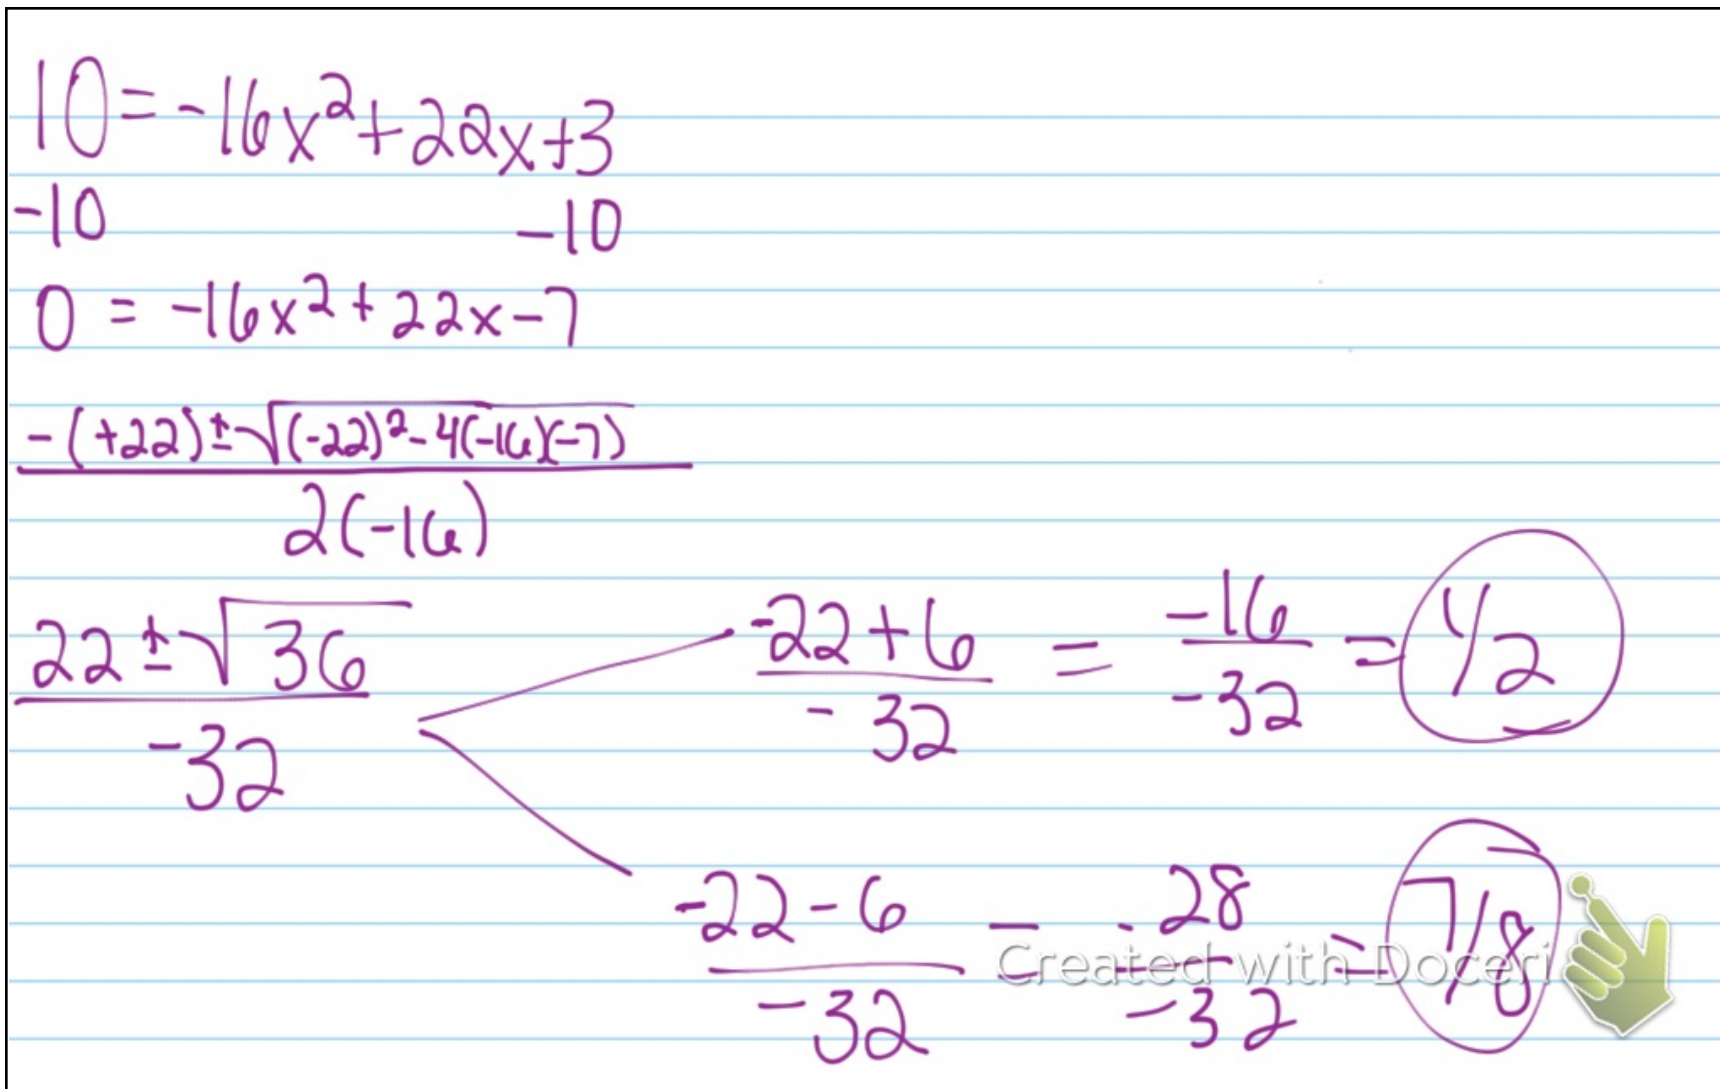 10 = -16x² + 22x + 3
-10 -10
0 = -16x² + 22x - 7
-(+22) ± √((-22)² - 4(-16)(-7))
2(-16)
22 ± √36
-32
-22 + 6 = -16 = 1/2
-32 -32
-22 - 6 = -28 = 7/8
-32 -32
Created with Doceri